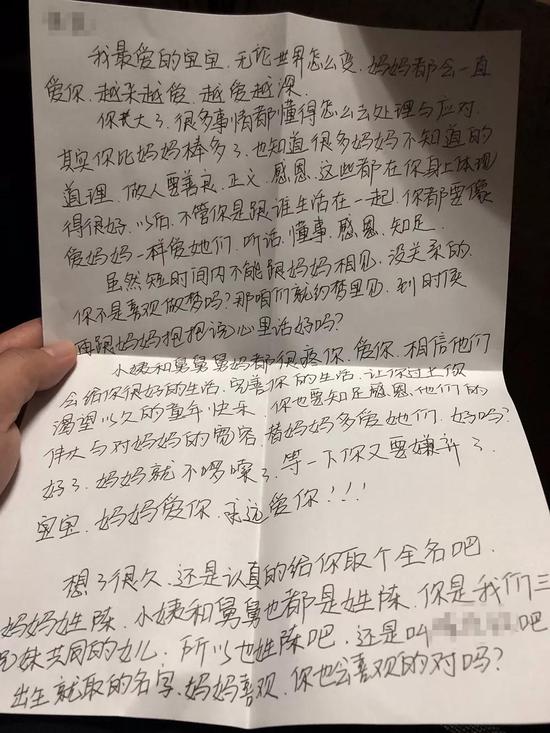 我最爱的宝宝.无论世界怎么变.妈妈都会一直
爱你.越来越爱.越爱越深.
你长大了.很多事情都懂得怎么去处理与应对.
其实你比妈妈棒多了.也知道很多妈妈不知道的
道理.做人要善良.正义.感恩.这些都在你身上体现
得很好.以后.不管你是跟谁生活在一起.你都要像
爱妈妈一样爱她们.听话.懂事.感恩.知足.
虽然短时间内不能跟妈妈相见.没关系的.
你不是喜欢做梦吗?那咱们就约梦里见.到时候
再跟妈妈抱抱说心里话好吗?
小姨和舅舅舅妈都很疼你.爱你.相信他们
会给你很好的生活.完善你的生活.让你过上你
渴望以久的童年快乐.你也要知足感恩.他们的
伟大与对妈妈的宽容.替妈妈多爱她们.好吗?
好了.妈妈就不啰嗦了.等一下你又要嫌弃了.
宝宝.妈妈爱你.永远爱你!!!
想了很久.还是认真的给你取个全名吧.
妈妈姓陈.小姨和舅舅也都是姓陈.你是我们三
兄妹共同的女儿.所以也姓陈吧.还是叫 吧.
出生就取的名字.妈妈喜欢.你也会喜欢的对吗?